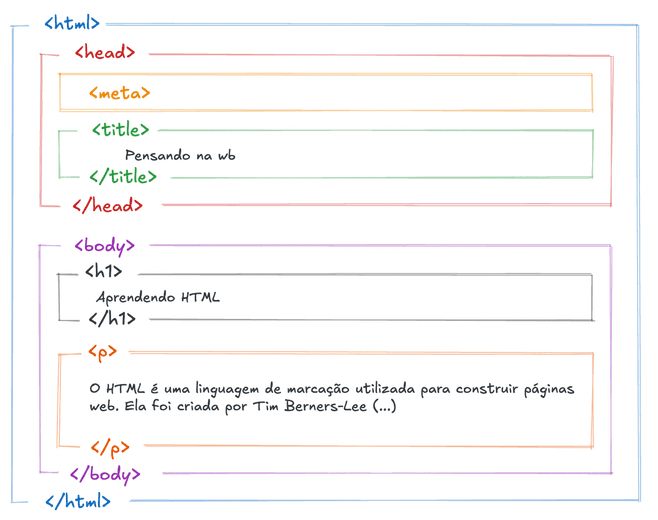 <html>
<head>
<meta>
<title>
Pensando na wb
</title>
</head>
<body>
<h1>
Aprendendo HTML
</h1>
<p>
O HTML é uma linguagem de marcação utilizada para construir páginas
web. Ela foi criada por Tim Berners-Lee (...)
</p>
</body>
</html>